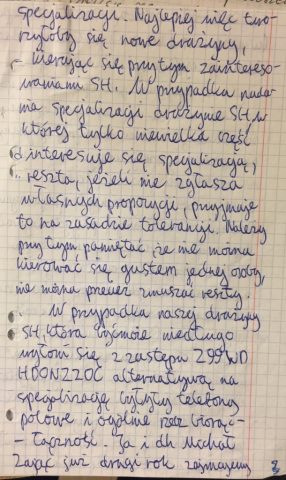 specjalizacji. Najlepiej więc two-
rzyłoby się nowe drużyny,
kierując się przytym zaintereso-
waniami SH. W przypadku nada-
nia specjalizacji drużynie SH w
której tylko niewielka część
interesuje się specjalizacją,
reszta, jeżeli nie zgłasza
własnych propozycji, przyjmuje
to na zasadzie tolerancji. Należy
przytym pamiętać, że nie można
kierować się gustem jednej osoby,
nie można przecież zmuszać reszty.
W przypadku naszej drużyny
SH, która być może niedługo
wyłoni się z zastępu Z99WD
alternatywą na
specjalizację byłyby telefony
polowe i ogólnie rzecz biorąc -
- łączność. Ja i dh Michał
Zając już drugi rok zajmujemy